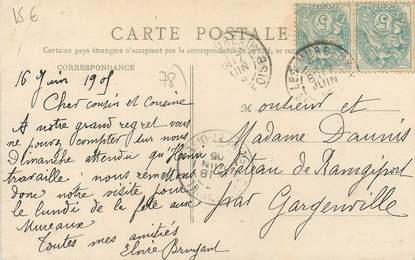 156
CARTE POSTALE
Certains pays étrangers n'acceptent pas la correspondance de ce côté
CORRESPONDANCE
78)
16 Juin 1905
Cher cousin et cousine
A notre grand regret vous
ne pouvez compter sur nous
Dimanche attendu qu'Henri
travaille : nous remettons
donc notre visite pour
le lundi de la fête aux
Mureaux
Toutes mes amitiés
Monsieur et
Madame Daunis
Château de Rangiport
par Gargenville